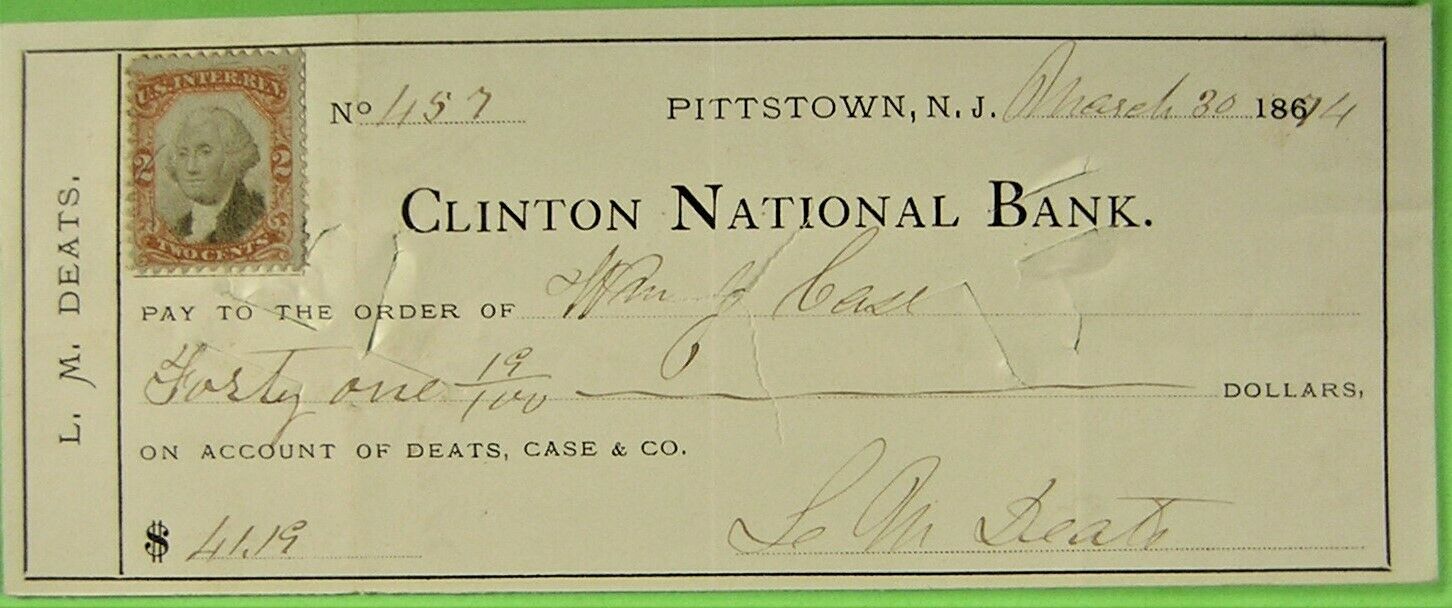 L. M. DEATS.
U.S. INTER. REV.
2 2
TWO CENTS
No 457 PITTSTOWN, N. J. March 30 1874
CLINTON NATIONAL BANK.
PAY TO THE ORDER OF Wm J Case
Forty one 19/100 DOLLARS,
ON ACCOUNT OF DEATS, CASE & CO.
$ 41.19 L M Deats